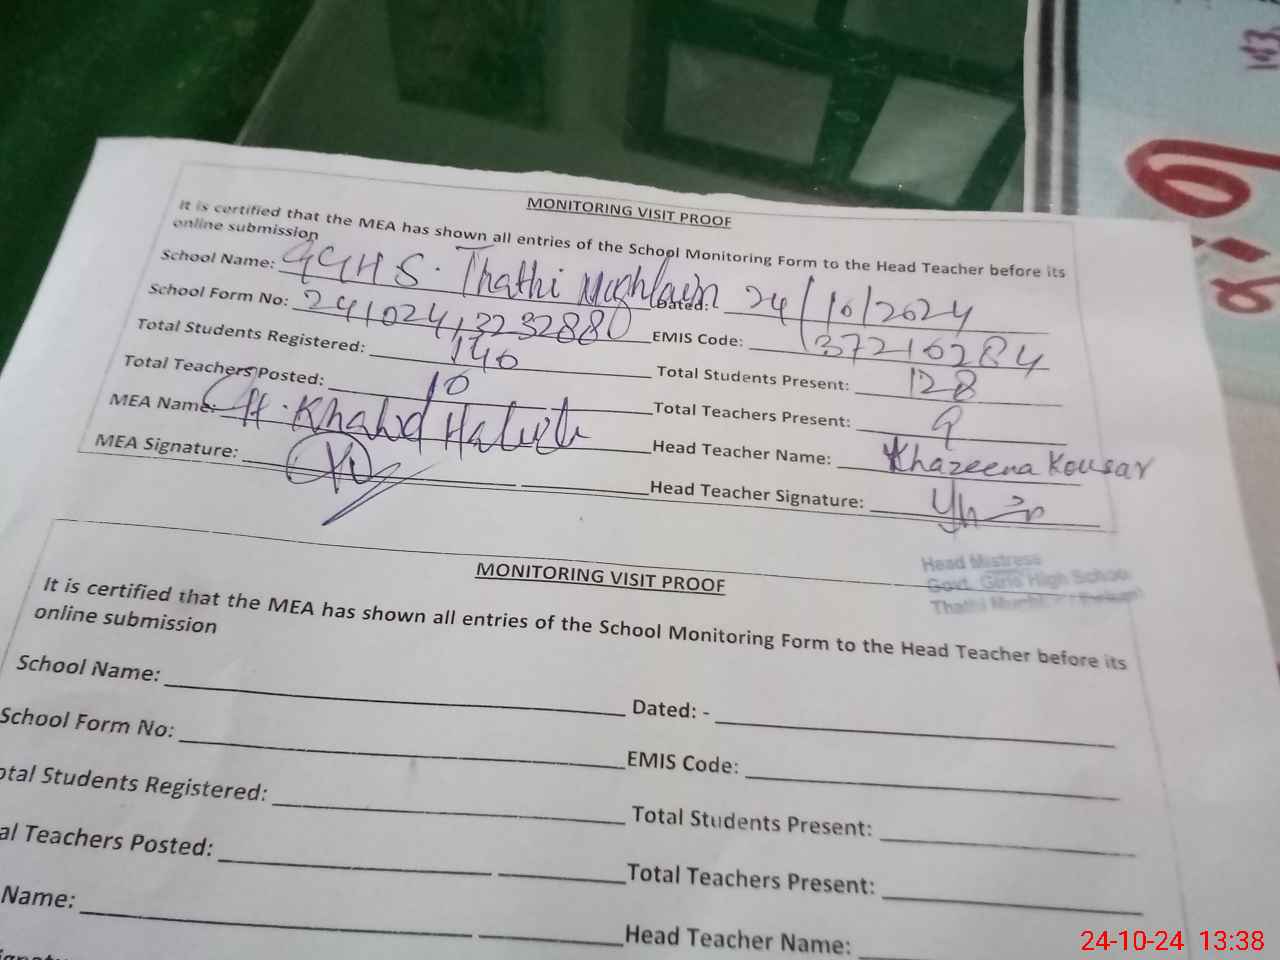 MONITORING VISIT PROOF
It is certified that the MEA has shown all entries of the School Monitoring Form to the Head Teacher before its
online submission
School Name: GGHS. Thathi Mughlain Dated: 24/10/2024
School Form No: 241024,3232880 EMIS Code: 37210284
Total Students Registered: 140 Total Students Present: 128
Total Teachers Posted: 10 Total Teachers Present: 9
MEA Name: CH. Khalid Head Teacher Name: Khazeena Kousar
MEA Signature: Head Teacher Signature:
Head Mistress
Govt. Girls High School
Thathi
MONITORING VISIT PROOF
It is certified that the MEA has shown all entries of the School Monitoring Form to the Head Teacher before its
online submission
School Name: Dated: -
School Form No: EMIS Code:
otal Students Registered: Total Students Present:
al Teachers Posted: Total Teachers Present:
Name: Head Teacher Name:
24-10-24 13:38